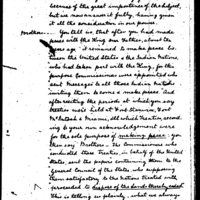 because of the great importance of the subject,
but we now answer it fully, having given
it all the consideration in our power.
Brothers. You tell us, that after you had made
peace with the King our Father, about ten
years ago "it remained to make peace be-
tween the United States & the Indian Nations,
who had taken part with the King, for this
purpose Commissioners were appointed who
sent Messages to all those Indian Nations
inviting them to come & make peace" And
after reciting the periods at which you say
treaties were held at Fort Stanwix, Fort
McIntosh & Miami, all which Treaties, accord-
ing to your own acknowledgement were
for the sole purpose of making peace; you
then say, Brothers. The Commissioners who
conducted these Treaties, in behalf of the United
States, sent the papers containing them to the
general Council of the States, who supposing
them satisfactory to the Nations treated with
proceeded to dispose of the lands thereby ceded
This is telling us plainly, what we always